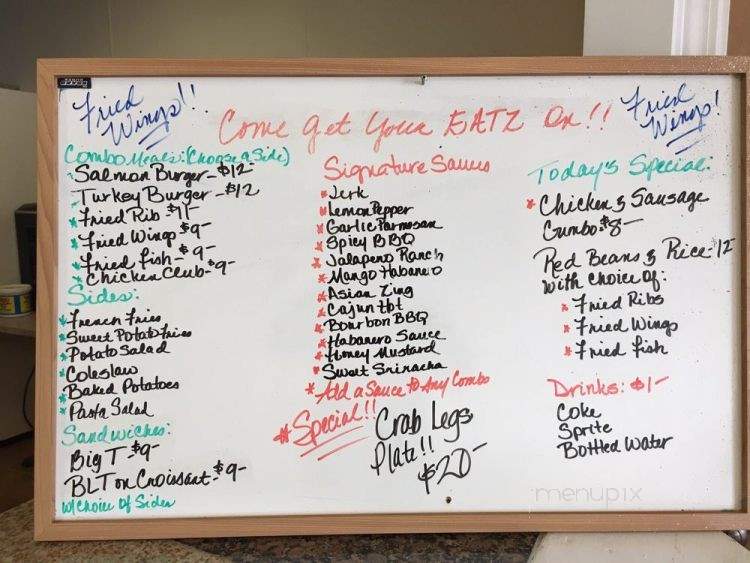 Fried Wings!!
Come get your EATZ On!!
Fried Wings!
Combo Meals: (Choose a Side)
Salmon Burger - $12
Turkey Burger - $12
* Fried Rib - $11-
* Fried Wings $9-
* Fried Fish - $9-
* Chicken Club - $9-
Sides:
* French Fries
* Sweet Potato Fries
* Potato Salad
* Coleslaw
* Baked Potatoes
* Pasta Salad
Sandwiches:
Big T - $9-
BLT on Croissant - $9-
w/ Choice of Sides
Signature Sauces
* Jerk
* Lemon Pepper
* Garlic Parmesan
* Spicy BBQ
* Jalapeno Ranch
* Mango Habanero
* Asian Zing
* Cajun Hot
* Bourbon BBQ
* Habanero Sauce
* Honey Mustard
* Sweet Sriracha
* Add a Sauce to Any Combo
* Special!! Crab Legs
Plate!!
$20-
Today's Special:
* Chicken & Sausage
Gumbo - $8-
Red Beans & Rice - 12
with choice of:
* Fried Ribs
* Fried Wings
* Fried Fish
Drinks: $1-
Coke
Sprite
Bottled Water
menupix